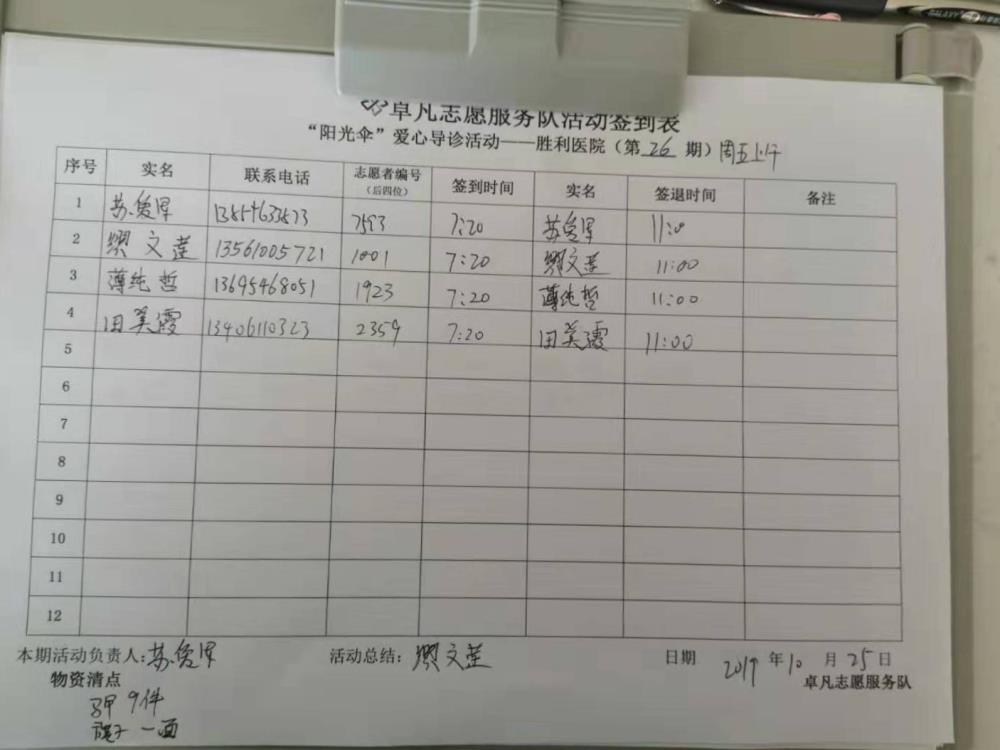 卓凡志愿服务队活动签到表
“阳光伞”爱心导诊活动——胜利医院（第 26 期）周五上午
序号 实名 联系电话 志愿者编号（后四位） 签到时间 实名 签退时间 备注
1 苏 7593 7:20 苏 11:0
2 文莲 13561005721 1001 7:20 文莲 11:00
3 薄纯哲 13695468051 1923 7:20 薄纯哲 11:00
4 田美霞 13406110323 2359 7:20 田美霞 11:00
5
6
7
8
9
10
11
12
本期活动负责人：苏 活动总结：文莲 日期 2019 年 10 月 25 日
物资清点 卓凡志愿服务队
9件
旗子 一面